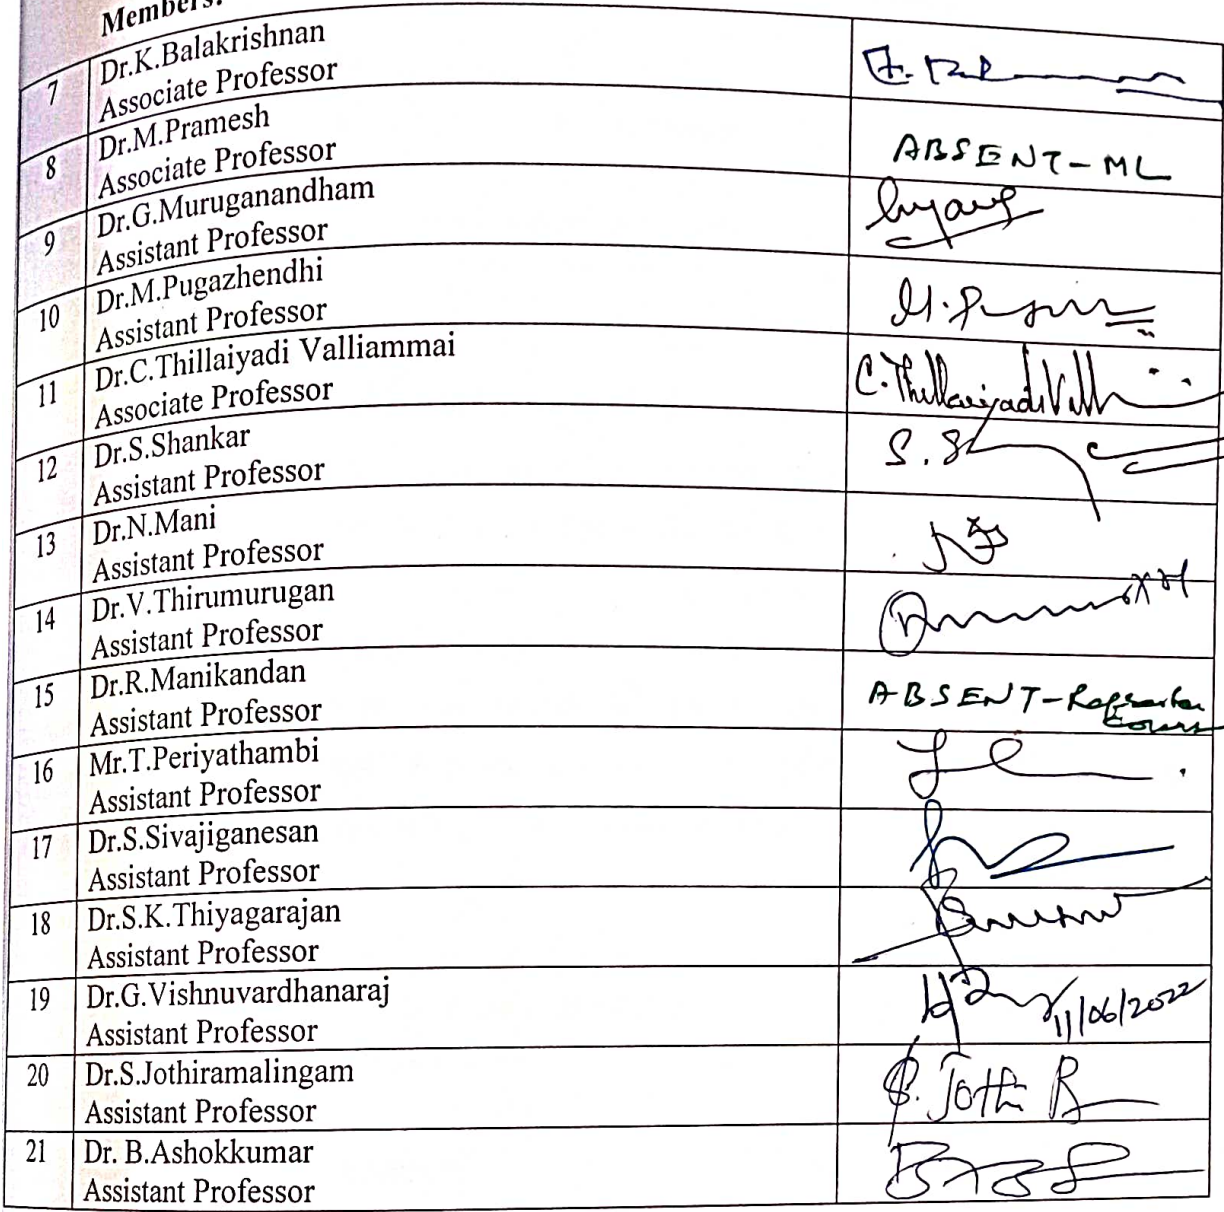 Members:
7 Dr.K.Balakrishnan
Associate Professor
8 Dr.M.Pramesh ABSENT-ML
Associate Professor
9 Dr.G.Muruganandham
Assistant Professor
10 Dr.M.Pugazhendhi
Assistant Professor
11 Dr.C.Thillaiyadi Valliammai C.Thillaiyadi
Associate Professor
12 Dr.S.Shankar
Assistant Professor
13 Dr.N.Mani
Assistant Professor
14 Dr.V.Thirumurugan
Assistant Professor
15 Dr.R.Manikandan ABSENT-
Assistant Professor
16 Mr.T.Periyathambi
Assistant Professor
17 Dr.S.Sivajiganesan
Assistant Professor
18 Dr.S.K.Thiyagarajan
Assistant Professor
19 Dr.G.Vishnuvardhanaraj 11/06/2022
Assistant Professor
20 Dr.S.Jothiramalingam S. Jothi R
Assistant Professor
21 Dr. B.Ashokkumar
Assistant Professor